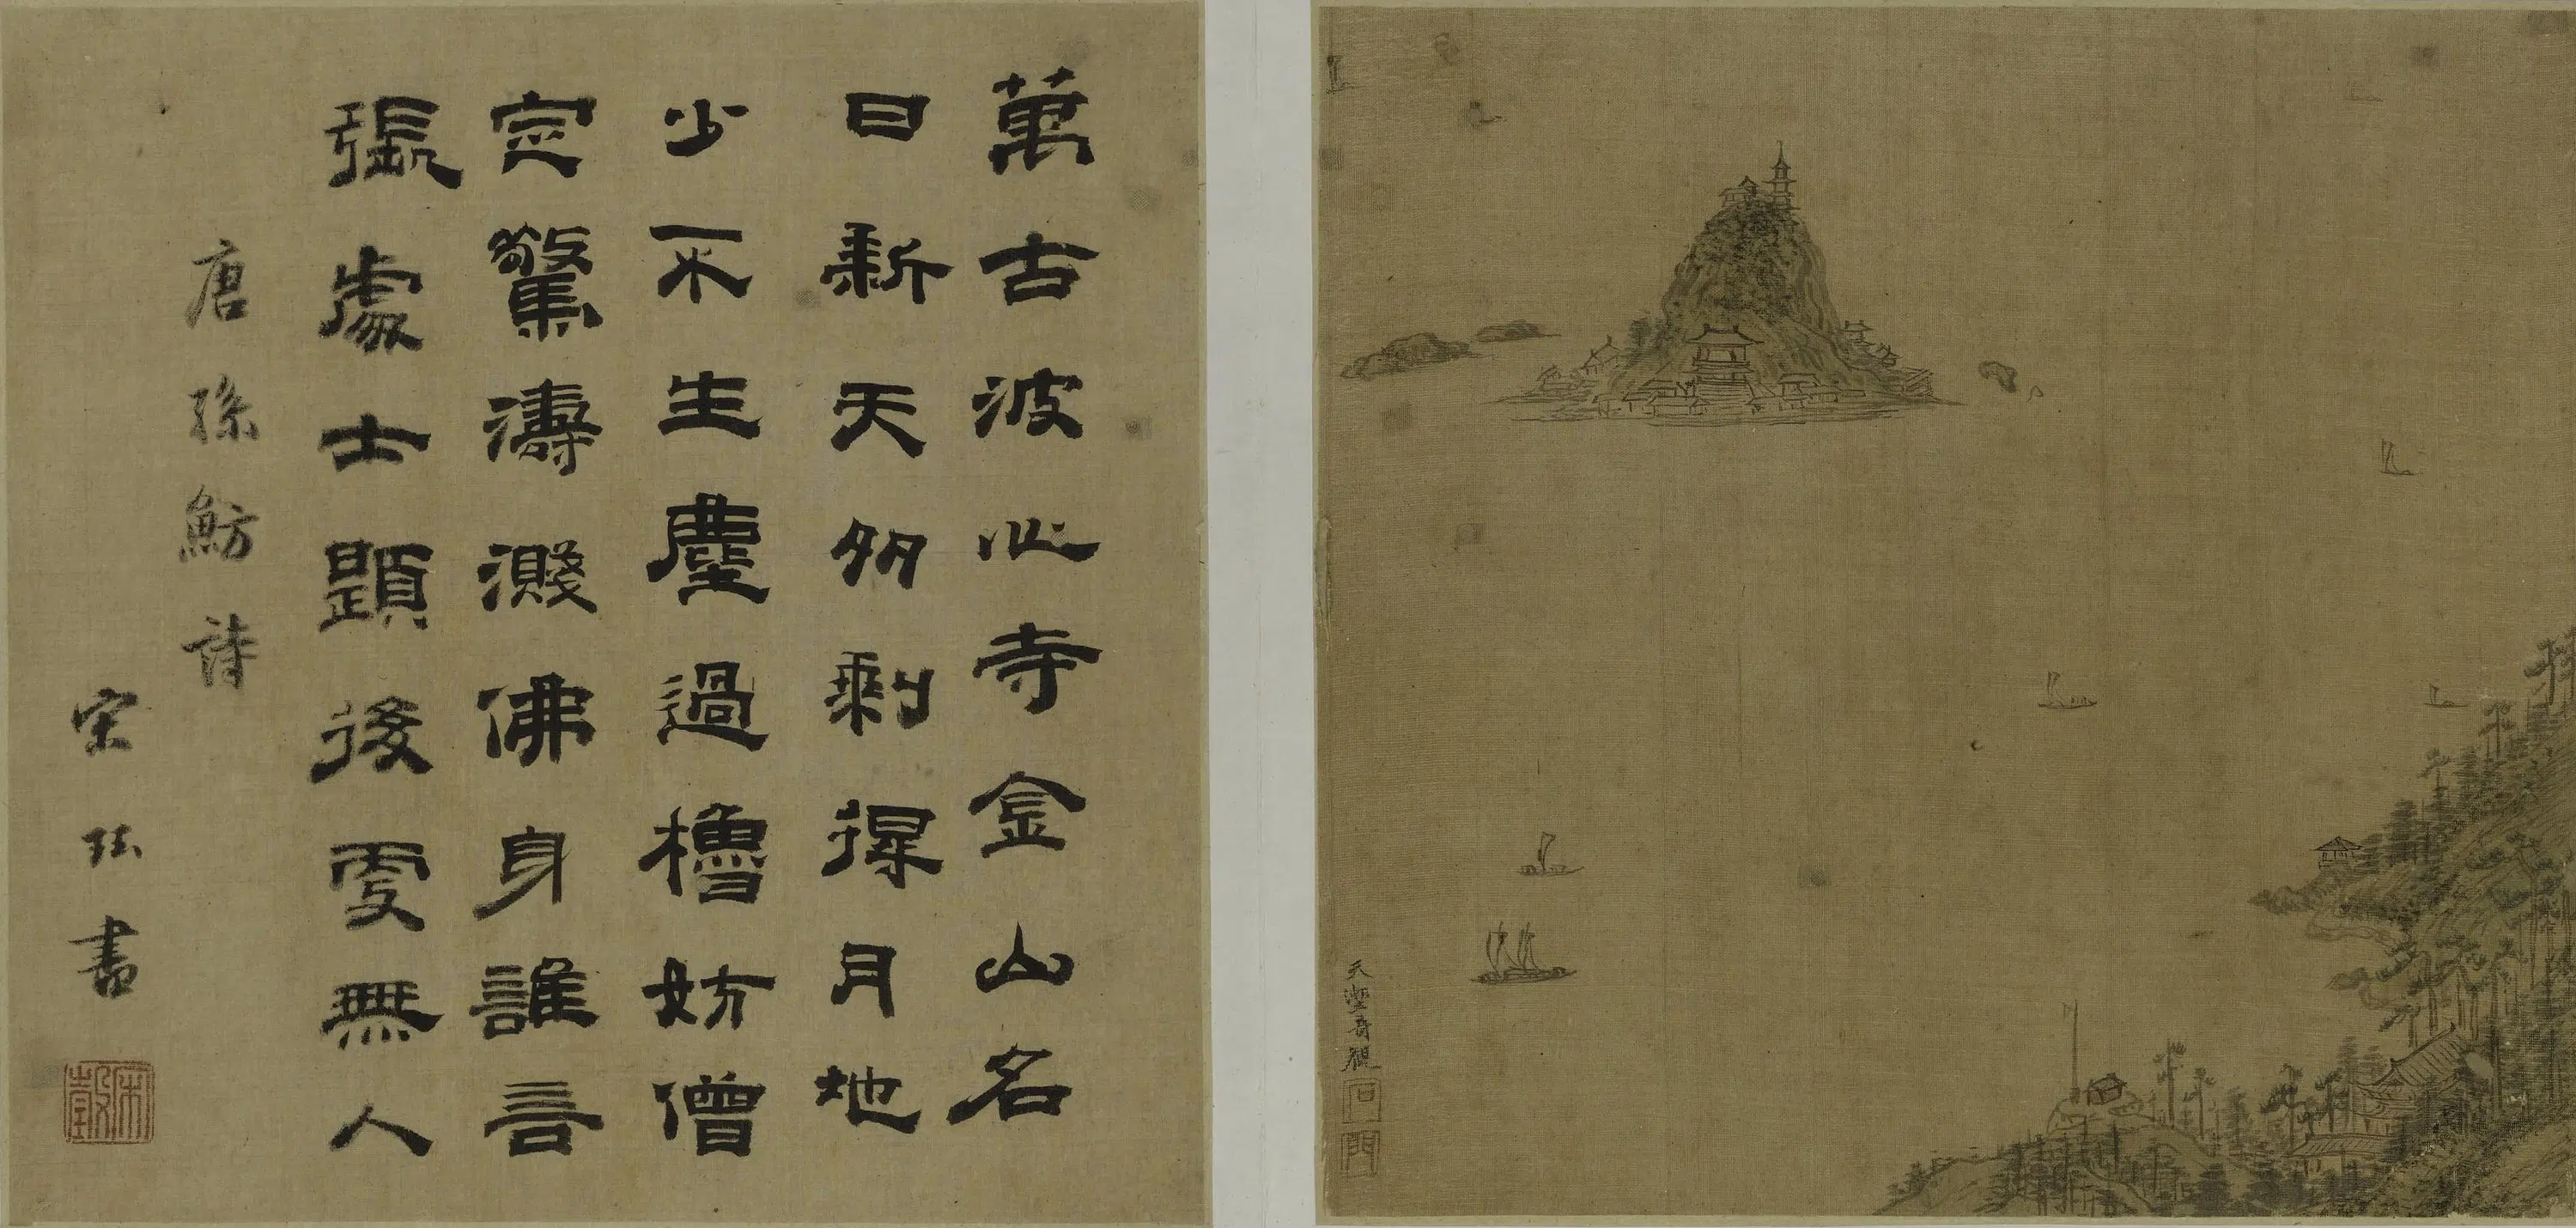 天塹奇觀
石門
萬古波心寺金山名
日新天多剩得月地
少不生塵過櫓妨僧
定驚濤濺佛身誰言
張處士題後更無人
唐孫魴詩
宋珏書
宋瑴